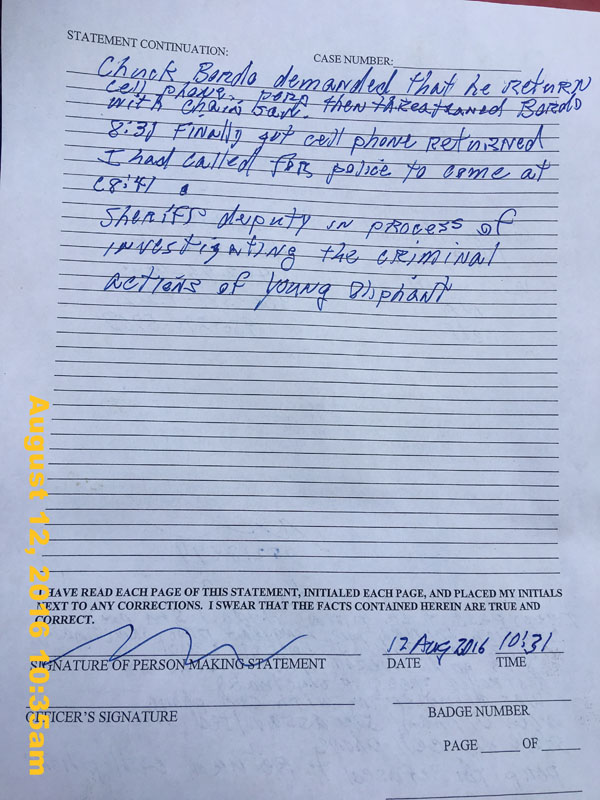 STATEMENT CONTINUATION:
CASE NUMBER:
Chuck Bordo demanded that he return
cell phone. perp then threatened Bordo
with chain saw.
8:31 Finally got cell phone returned
I had called for police to come at
8:41
Sheriff deputy in process of
investigating the criminal
actions of young Oliphant
I HAVE READ EACH PAGE OF THIS STATEMENT, INITIALED EACH PAGE, AND PLACED MY INITIALS
NEXT TO ANY CORRECTIONS. I SWEAR THAT THE FACTS CONTAINED HEREIN ARE TRUE AND
CORRECT.
12 Aug 2016 10:31
SIGNATURE OF PERSON MAKING STATEMENT DATE TIME
OFFICER'S SIGNATURE BADGE NUMBER
PAGE OF
August 12, 2016 10:35am